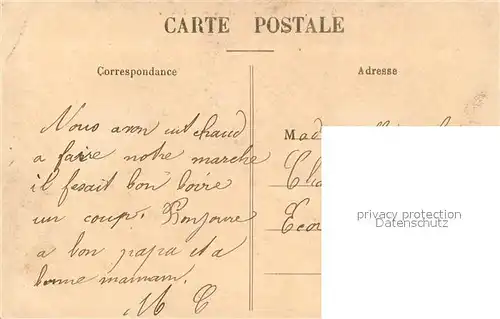 CARTE POSTALE
Correspondance
Adresse
Nous avon eut chaud
a faire notre marche
il fesait bon boire
un coup. Bonjoure
a bon papa et a
bonne maman.
M C
Mad
privacy protection
Datenschutz